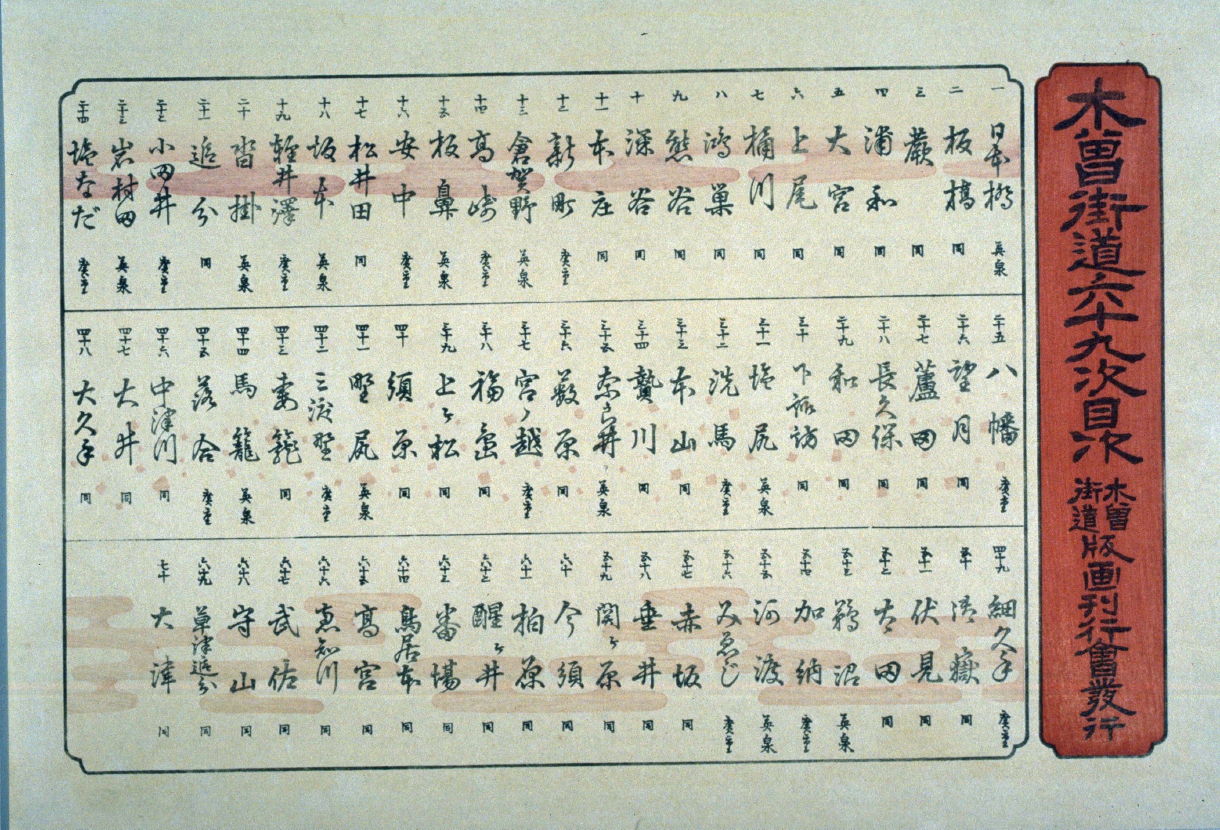 木曽街道六十九次目次 木曽街道版画刊行會發行
一 日本橋 英泉
二 板橋 同
三 蕨 同
四 浦和 同
五 大宮 同
六 上尾 同
七 桶川 同
八 鴻巣 同
九 熊谷 同
十 深谷 同
十一 本庄 同
十二 新町 廣重
十三 倉賀野 英泉
十四 高崎 廣重
十五 板鼻 英泉
十六 安中 廣重
十七 松井田 同
十八 坂本 英泉
十九 輕井澤 廣重
二十 沓掛 英泉
二十一 追分 同
二十二 小田井 廣重
二十三 岩村田 英泉
二十四 塩なだ 廣重
二十五 八幡 廣重
二十六 望月 同
二十七 蘆田 同
二十八 長久保 同
二十九 和田 同
三十 下諏訪 同
三十一 塩尻 英泉
三十二 洗馬 廣重
三十三 本山 同
三十四 贄川 同
三十五 奈良井 英泉
三十六 薮原 同
三十七 宮ノ越 廣重
三十八 福島 同
三十九 上ヶ松 同
四十 須原 同
四十一 野尻 英泉
四十二 三渡野 廣重
四十三 妻籠 同
四十四 馬籠 英泉
四十五 落合 廣重
四十六 中津川 同
四十七 大井 同
四十八 大久手 同
四十九 細久手 廣重
五十 御嶽 同
五十一 伏見 同
五十二 太田 同
五十三 鵜沼 英泉
五十四 加納 廣重
五十五 河渡 英泉
五十六 みゑじ 廣重
五十七 赤坂 同
五十八 垂井 同
五十九 関ヶ原 同
六十 今須 同
六十一 柏原 同
六十二 醒ヶ井 同
六十三 番場 同
六十四 鳥居本 同
六十五 高宮 同
六十六 恵知川 同
六十七 武佐 同
六十八 守山 同
六十九 草津追分 同
七十 大津 同